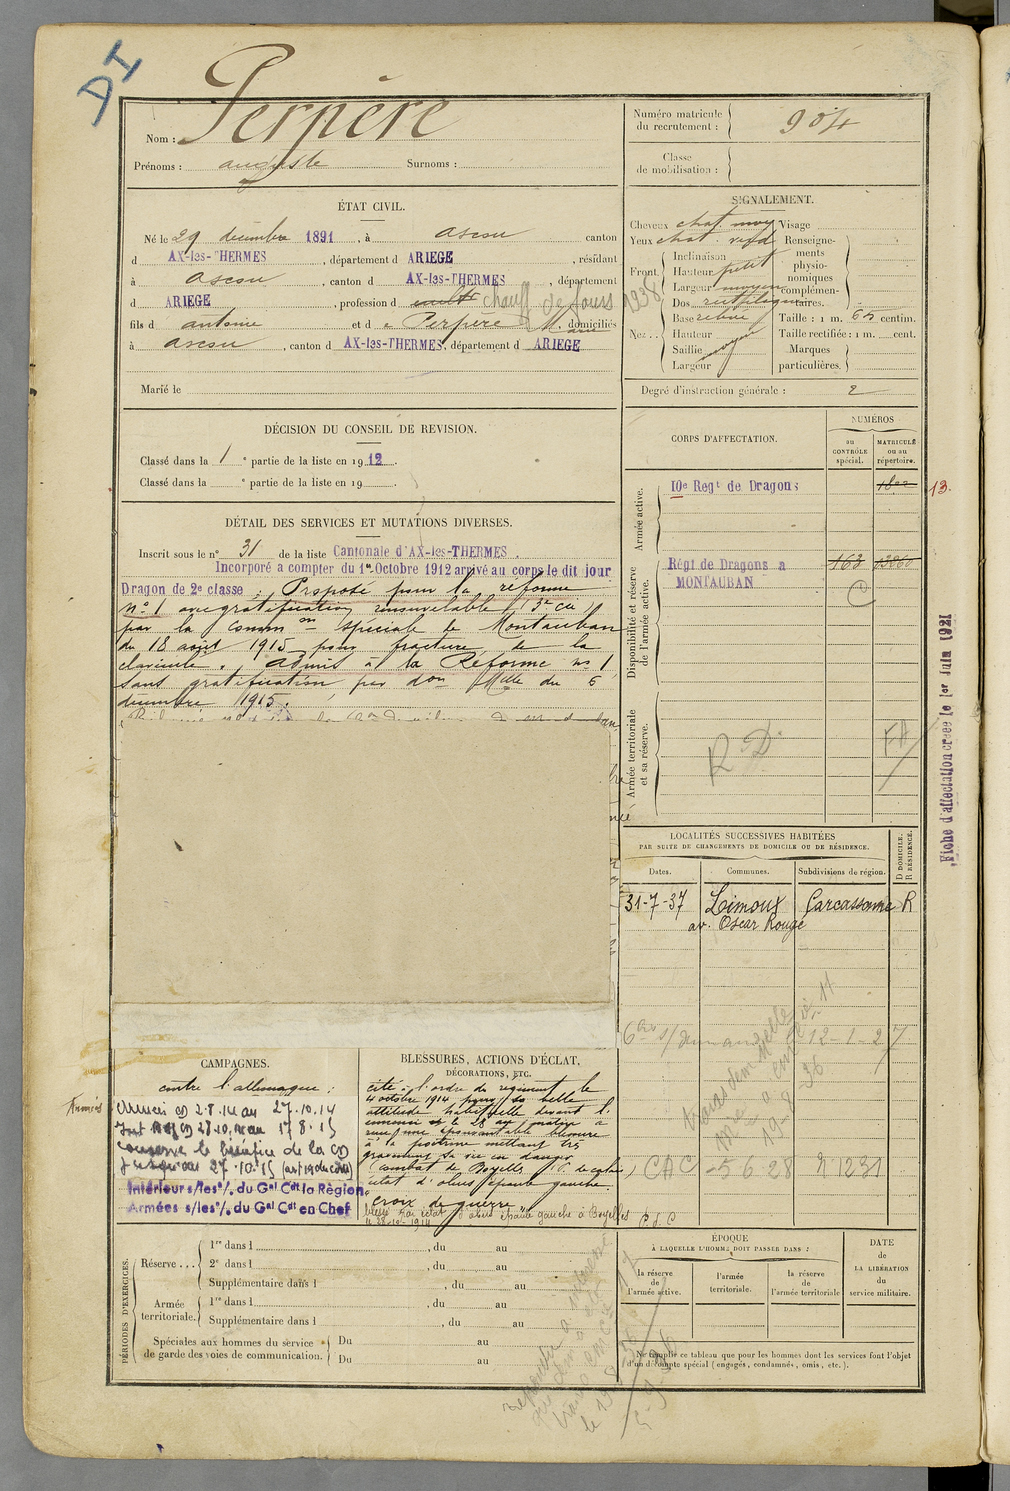 AI
Nom : Perpère
Prénoms : auguste Surnoms :
Numéro matricule du recrutement : 904
Classe de mobilisation :
ÉTAT CIVIL.
Né le 29 décembre 1891, à ascou canton
d AX-les-THERMES, département d ARIEGE, résidant
à ascou, canton d AX-les-THERMES, département
d ARIEGE, profession d cultr chauff de fours 1938
fils d antoine et d e Perpère M. arie domiciliés
à ascou, canton d AX-les-THERMES, département d ARIEGE
Marié le
SIGNALEMENT.
Cheveux chat. moy Visage
Yeux chat. verd Renseigne-
ments
physio-
nomiques
complémen-
taires.
Front. Inclinaison
Hauteur petit
Largeur moyen
Nez .. Dos rectiligne
Base relevé
Hauteur
Saillie moyen
Largeur
Taille : 1 m. 65 centim.
Taille rectifiée : 1 m. cent.
Marques
particulières.
Degré d'instruction générale : 2
DÉCISION DU CONSEIL DE REVISION.
Classé dans la 1 e partie de la liste en 1912.
Classé dans la e partie de la liste en 19 .
CORPS D'AFFECTATION.
NUMÉROS
au CONTRÔLE spécial.
MATRICULE ou au répertoire.
Armée active.
10e Regt de Dragons
13.
Disponibilité et réserve de l'armée active.
Régt de Dragons a 163
MONTAUBAN
C
Armée territoriale et sa réserve.
R D.
FA
Fiche d'affectation créée le 1er Juin 1921
DÉTAIL DES SERVICES ET MUTATIONS DIVERSES.
Inscrit sous le n° 31 de la liste Cantonale d'AX-les-THERMES.
Incorporé a compter du 1er Octobre 1912 arrivé au corps le dit jour
Dragon de 2e classe ; Proposé pour la réforme
n° 1 avec gratification renouvelable (3e cie)
par la Comm on spéciale de Montauban
du 18 août 1915 pour fracture de la
clavicule. Admis à la Réforme n° 1
sans gratification par don Mlle du 6
décembre 1915.
LOCALITÉS SUCCESSIVES HABITÉES
PAR SUITE DE CHANGEMENTS DE DOMICILE OU DE RÉSIDENCE.
Dates. Communes. Subdivisions de région. D DOMICILE. R RÉSIDENCE.
31-7-37 Limoux Carcassonne R
av. Oscar Rougé
12-1-27
19-8 36
CAC 5 6 28 N 1231
CAMPAGNES.
contre l'allemagne :
Armées
Armées CD 2.8.14 au 27.10.14
Int CD 28.10.14 au 17 8.15
Conserve le bénéfice de la CD
jusqu'au 27.10.15
Intérieur s/les °/. du Gal Cdt la Région.
Armées s/les °/. du Gal Cdt en Chef
BLESSURES, ACTIONS D'ÉCLAT,
DÉCORATIONS, ETC.
cité à l'ordre du régiment le
4 octobre 1914 pour sa belle
attitude habituelle devant l'
ennemi et le 28 au matin a
reçu une épouvantable blessure
à la poitrine mettant très
gravement sa vie en danger
(combat de Boyelle (P. de calais)
éclat d'obus épaule gauche.
"Croix de guerre"
blessé par éclat d'obus épaule gauche à Boyelles P. d. C
le 28-10-1914
PÉRIODES D'EXERCICES.
Réserve ... 1re dans l , du au
2e dans l , du au
Supplémentaire dans l , du au
Armée territoriale. 1re dans l , du au
Supplémentaire dans l , du au
Spéciales aux hommes du service
de garde des voies de communication. Du au
Du au
ÉPOQUE
À LAQUELLE L'HOMME DOIT PASSER DANS :
la réserve de l'armée active.
l'armée territoriale.
la réserve de l'armée territoriale
DATE
de
LA LIBÉRATION
du
service militaire.
Ne remplir ce tableau que pour les hommes dont les services font l'objet
d'un décompte spécial (engagés, condamnés, omis, etc.).